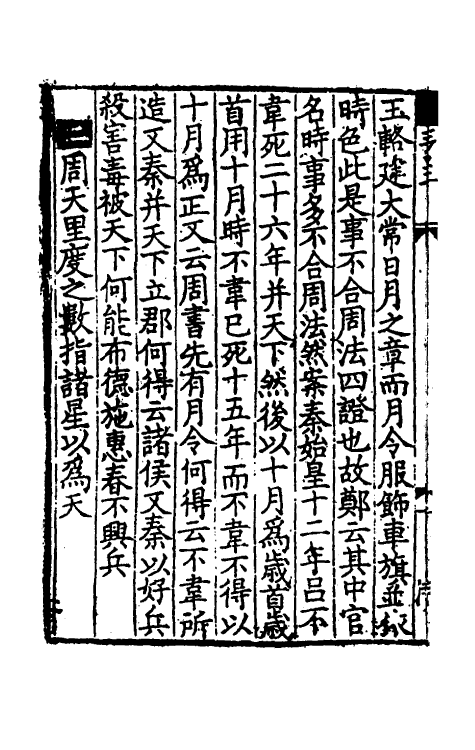 玉輅建大常日月之章而月令服飾車旗並
時色此是事不合周法四證也故鄭云其中官
名時事多不合周法然案秦始皇十二年呂不
韋死二十六年并天下然後以十月爲歲首歲
首用十月時不韋已死十五年而不韋不得以
十月爲正又云周書先有月令何得云不韋所
造又秦并天下立郡何得云諸侯又秦以好兵
殺害毒被天下何能布德施惠春不興兵
周天里度之數指諸星以爲天